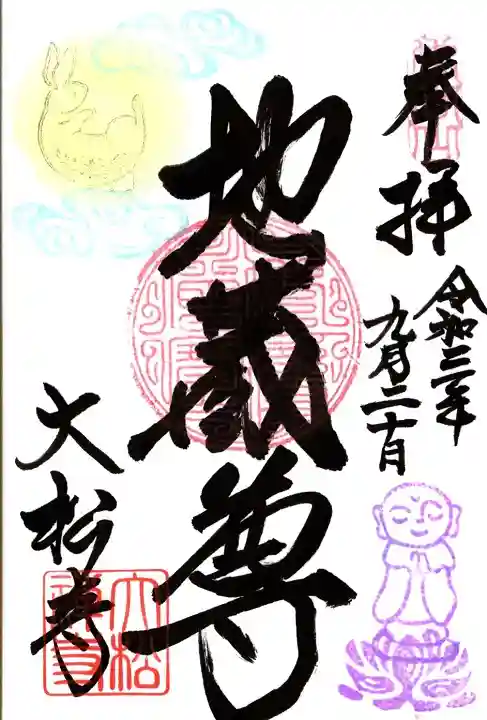 奉拝
令和三年
九月二十日
地蔵尊
大松寺
大松
禅寺